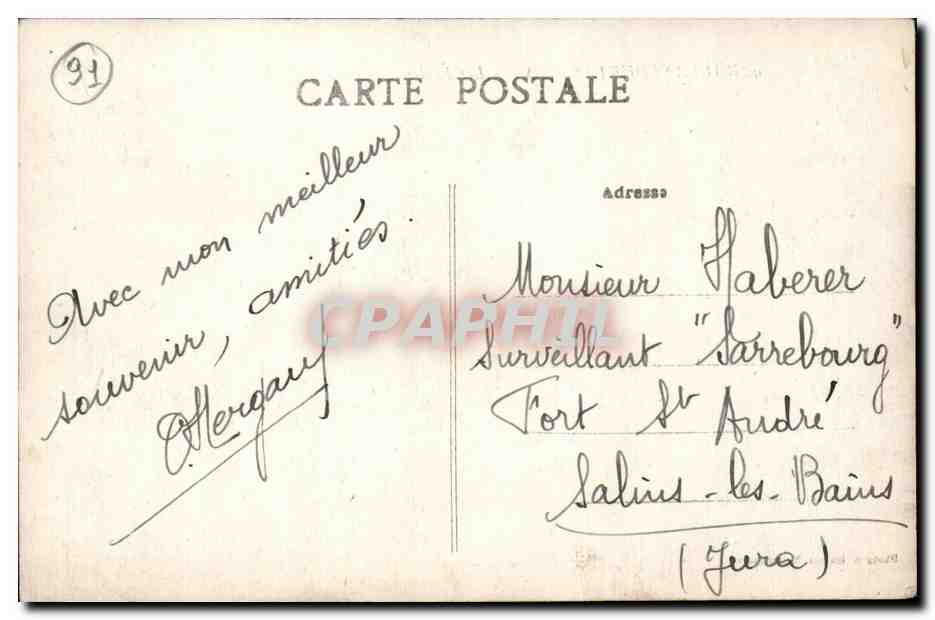 91
CARTE POSTALE
Avec mon meilleur
souvenir, amitiés.
Adresse
Monsieur Haberer
Surveillant "Sarrebourg"
Fort St André
Salins-les-Bains
(Jura)
CPAPHIL